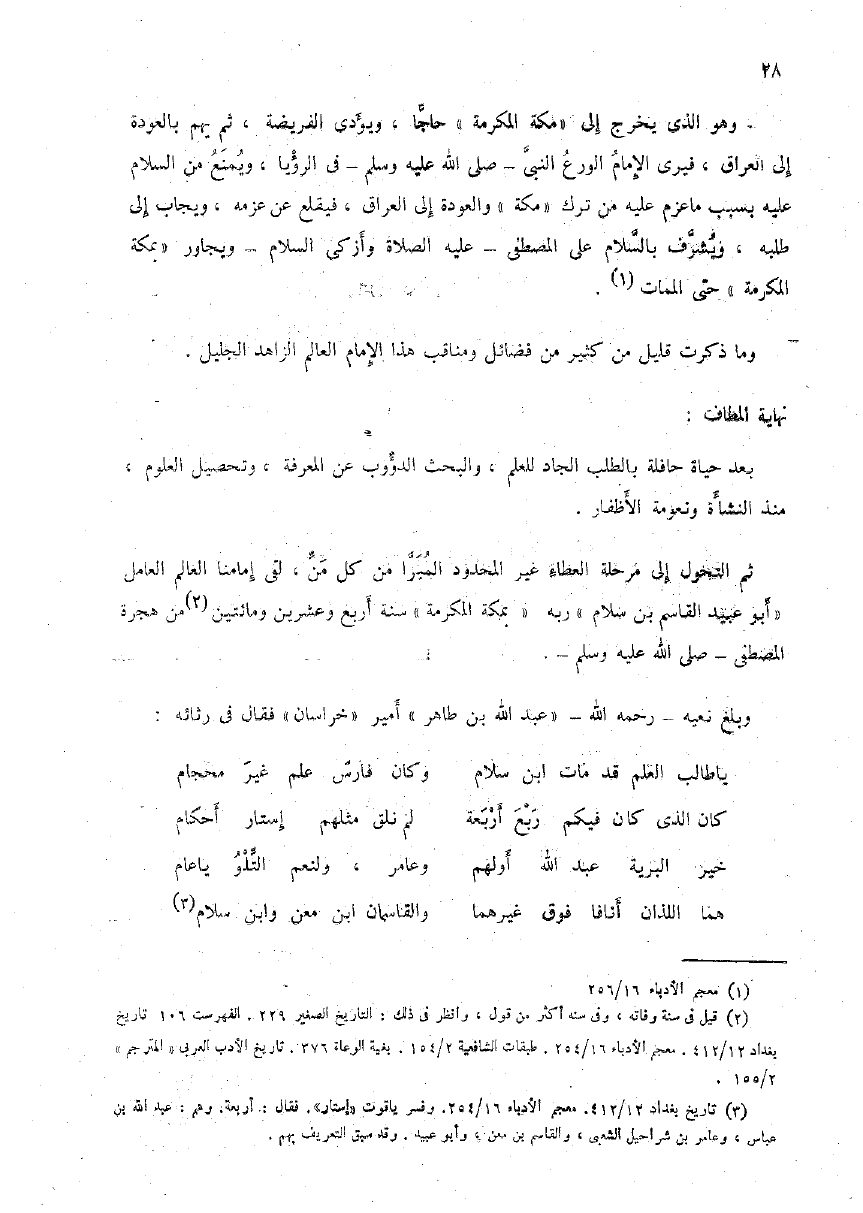 ٢٨
. وهو الذى يخرج إلى «مكة المكرمة » حاجًّا ، ويؤدى الفريضة ، ثم يهم بالعودة
إلى العراق ، فيرى الإمامُ الورعُ النبيَّ – صلى الله عليه وسلم – فى الرؤيا ، ويُمنَعُ من السلام
عليه بسبب ماعزم عليه من ترك «مكة » والعودة إلى العراق ، فيقلع عن عزمه ، ويجاب إلى
طلبه ، ويُشرَّف بالسَّلام على المصطفى – عليه الصلاة وأزكى السلام – ويجاور «بمكة
المكرمة » حتى الممات (١) .
وما ذكرت قليل من كثير من فضائل ومناقب هذا الإمام العالم الزاهد الجليل .
نهاية المطاف :
بعد حياة حافلة بالطلب الجاد للعلم ، والبحث الدؤوب عن المعرفة ، وتحصيل العلوم ،
منذ النشأة ونعومة الأظفار .
ثم التحول إلى مرحلة العطاء غير المحدود المُبَرَّا من كل مَنٍّ ، لقى إمامنا العالم العامل
«أبو عبيد القاسم بن سلام » ربه « بمكة المكرمة » سنة أربع وعشرين ومائتين (٢) من هجرة
المصطفى – صلى الله عليه وسلم – .
وبلغ نعيه – رحمه الله – «عبد الله بن طاهر » أمير «خراسان» فقال فى رثائه :
ياطالب العلم قد مات ابن سلام وكان فارسَ علم غيرَ محجام
كان الذى كان فيكم رَبْعَ أَرْبَعة لم نلق مثلهم إستار أحكام
خير البرية عبد الله أولهم وعامر ، ولنعم التَّلْوُ ياعام
هما اللذان أنافا فوق غيرهما والقاسمان ابن معن وابن سلام (٣)
(١) معجم الأدباء ٢٥٦/١٦
(٢) قيل فى سنة وفاته ، وفى سنه أكثر من قول ، وانظر فى ذلك : التاريخ الصغير ٢٢٩ . الفهرست ١٠٦ تاريخ
بغداد ٤١٢/١٢ . معجم الأدباء ٢٥٤/١٦ . طبقات الشافعية ١٥٤/٢ . بغية الوعاة ٣٧٦ . تاريخ الأدب العربى « المترجم »
١٥٥/٢ .
(٣) تاريخ بغداد ٤١٢/١٢. معجم الأدباء ٢٥٤/١٦. وفسر ياقوت «إستار». فقال : أربعة. وهم : عبد الله بن
عباس ، وعامر بن شراحيل الشعبى ، والقاسم بن معن ، وأبو عبيد . وقد سبق التعريف بهم .